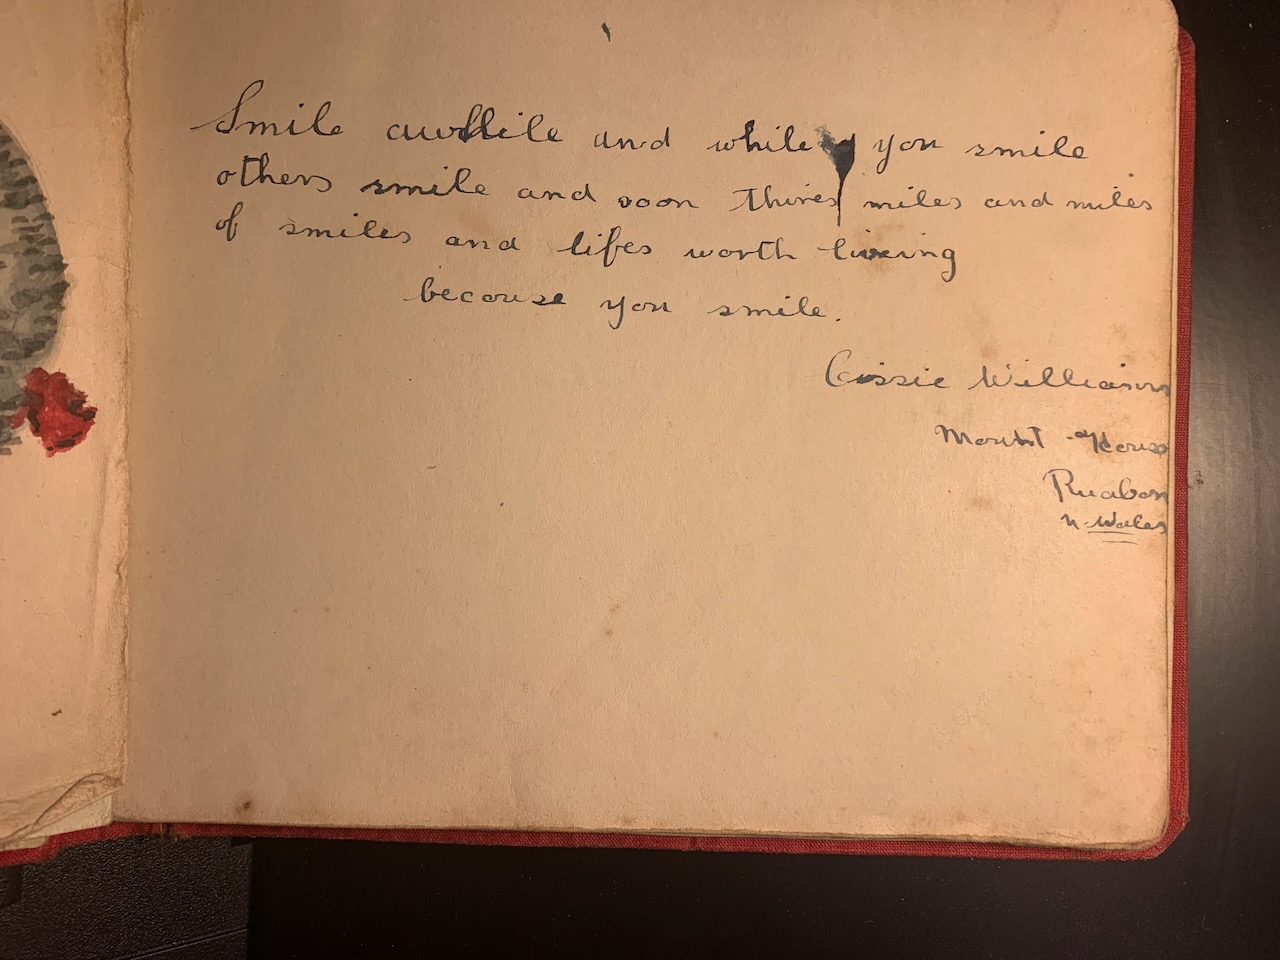 Smile awhile and while you smile
others smile and soon thires miles and miles
of smiles and lifes worth liveing
because you smile.
Cissie Williams
Mount House
Ruabon
N. Wales